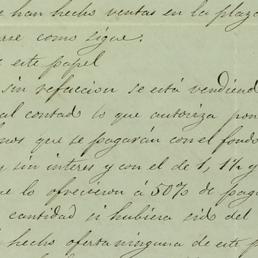 han hecho ventas en la plaza
como sigue:
este papel
sin refaccion se está vendiendo
al contado lo que autoriza pon
nos que se pagarán con el fondo
sin interes y con el de 1, 1½ y
lo ofrecieron á 50% de pag
cantidad si hubiera sido del
hecho oferta ninguna de este p